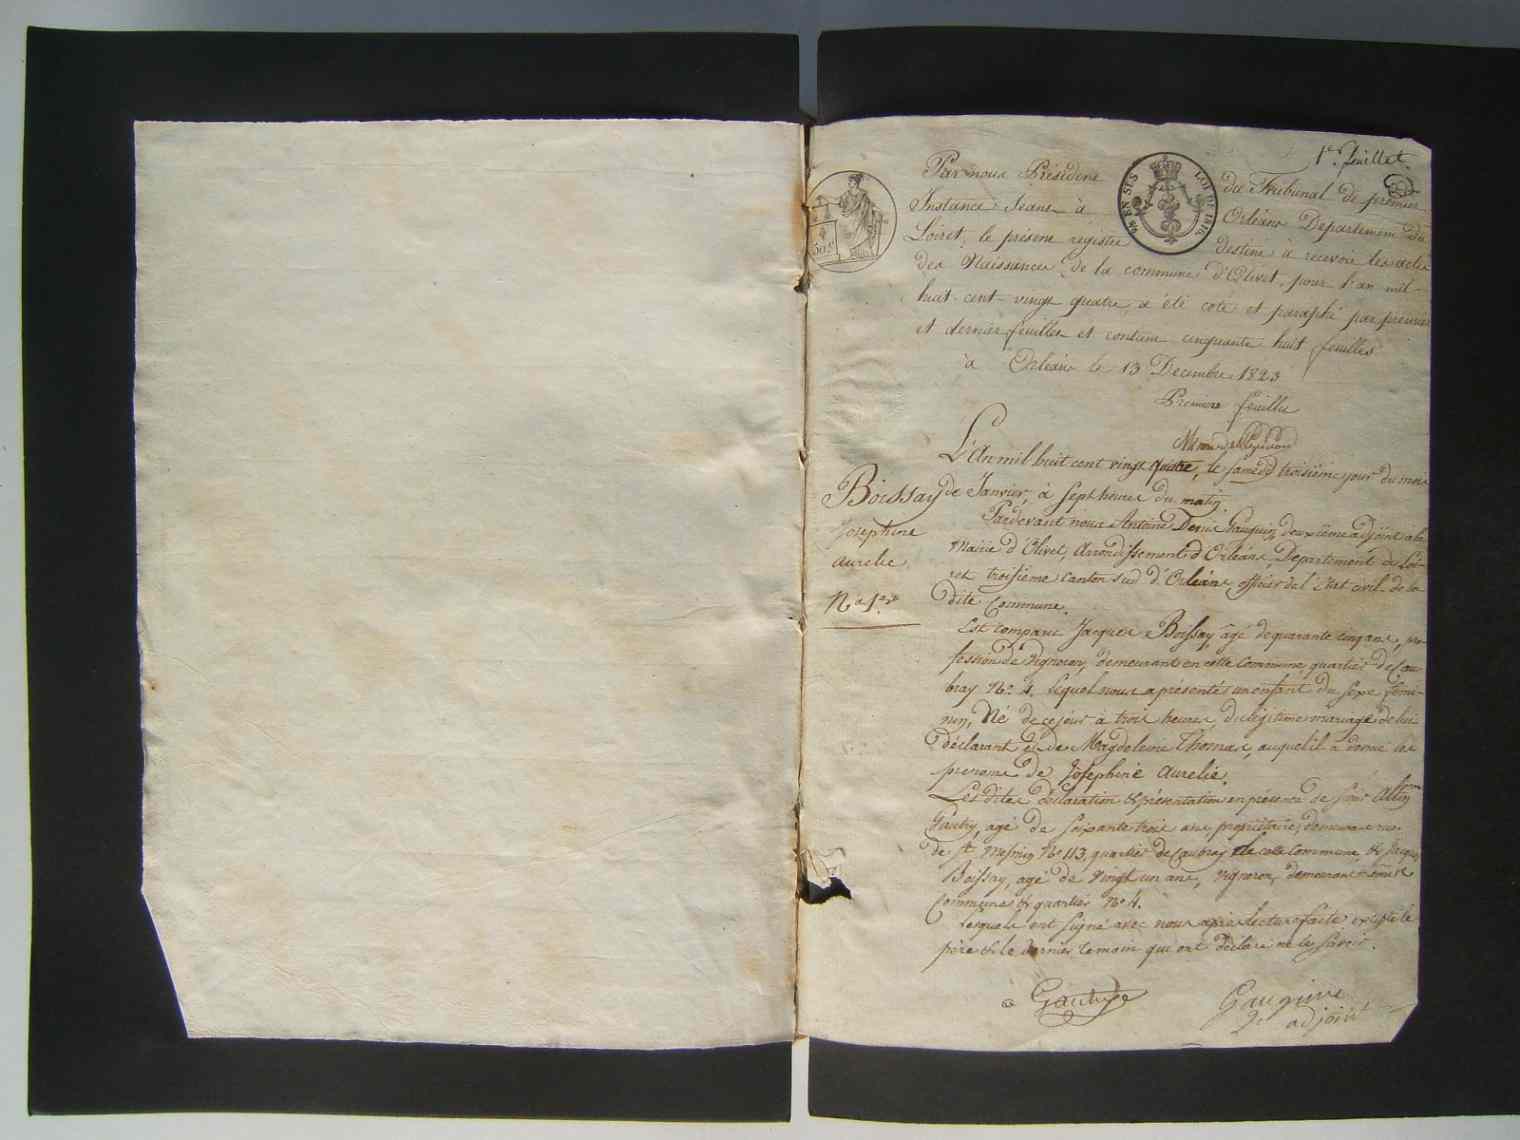 1er feuillet.
Par nous Président du Tribunal de premier
Instance Séant à Orléans Département du
Loiret, le présent registre destiné à recevoir les actes
des Naissances de la commune d'Olivet, pour l'an mil-
huit-cent-vingt quatre, a été coté et paraphé par premier
et dernier feuilles et contenu cinquante huit feuilles
à Orléans le 13 Décembre 1823
Premiere feuille
L'An mil huit cent vingt quatre, le samedi troisiême jour du mois
de Janvier, à Sept heures du matin
Pardevant nous Antoine Denis Gauguin, deuxième adjoint à la
Mairie d'Olivet, Arrondissement d'Orléans, Département du Loi-
ret troisieme canton sud d'Orléans officier de l'Etat civil de la
dite Commune.
Est comparu Jacques Boissay, âgé de quarante cinq ans, pro-
fession de Vigneron, demeurant en cette Commune quartier de Cau-
bray No. 4. lequel nous a présenté un enfant du sexe Fémi-
nin, Né de ce jour à trois heures, du légitime mariage de lui
déclarant et de Magdeleine Thomas, auquel il a donné les
prenoms de Josephine Aurelie.
Les dites déclaration & présentation en présence de
Gautry, agé de soixante trois ans propriétaire, demeurant rue
de St. Mesmin No 113, quartier de Caubray de cette Commune & Jacques
Boissay, agé de vingt un ans, vigneron, demeurant même
Commune & quartier No 4.
Lesquels ont signé avec nous après lecture faite excepté le
père & le dernier témoin qui ont déclaré ne le savoir.
Boissay
Josephine
Aurelie
No 1er
Gautry
Gauguin
2e adjoint
LOI DE 1816
50 c.